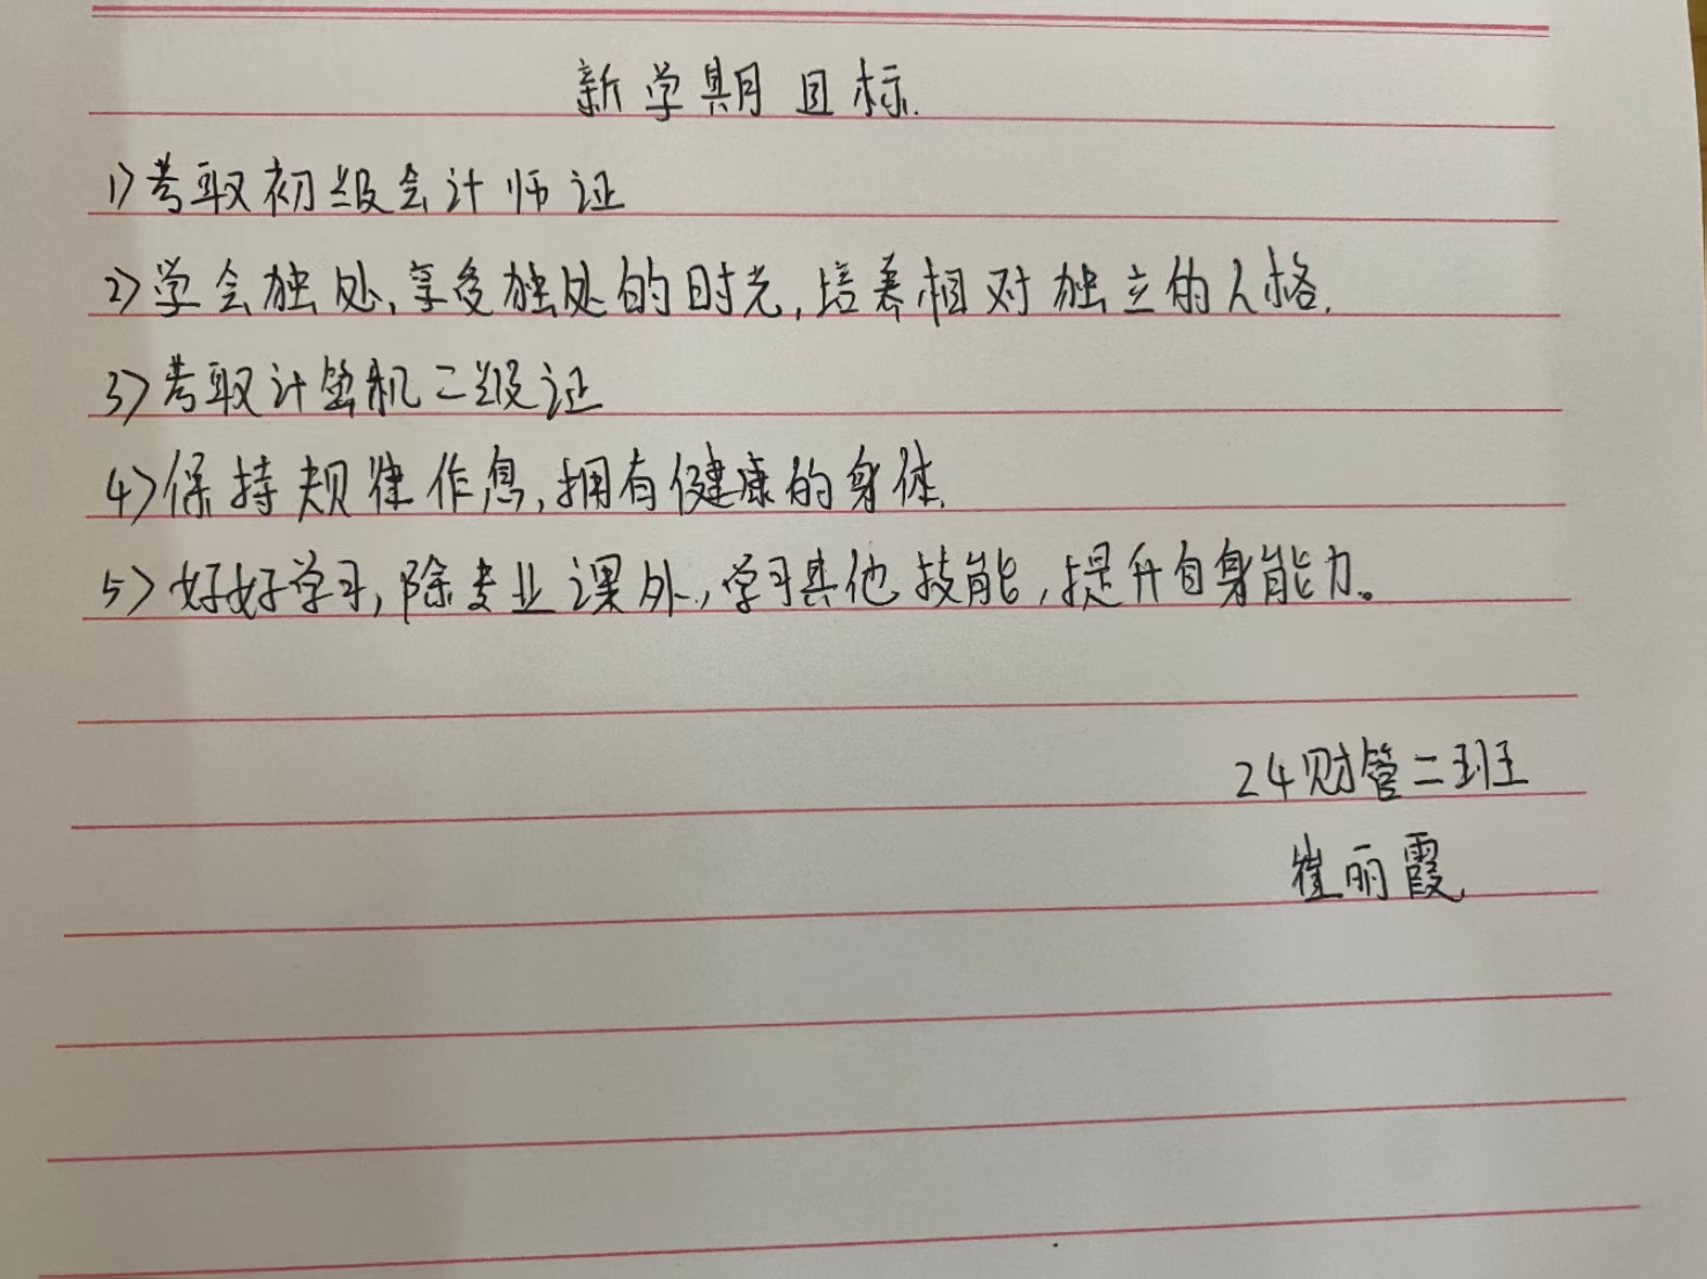 新学期目标.
1>考取初级会计师证
2>学会独处,享受独处的时光,培养相对独立的人格.
3>考取计算机二级证
4>保持规律作息,拥有健康的身体.
5>好好学习,除专业课外,学习其他技能,提升自身能力。
24财管二班
崔丽霞.